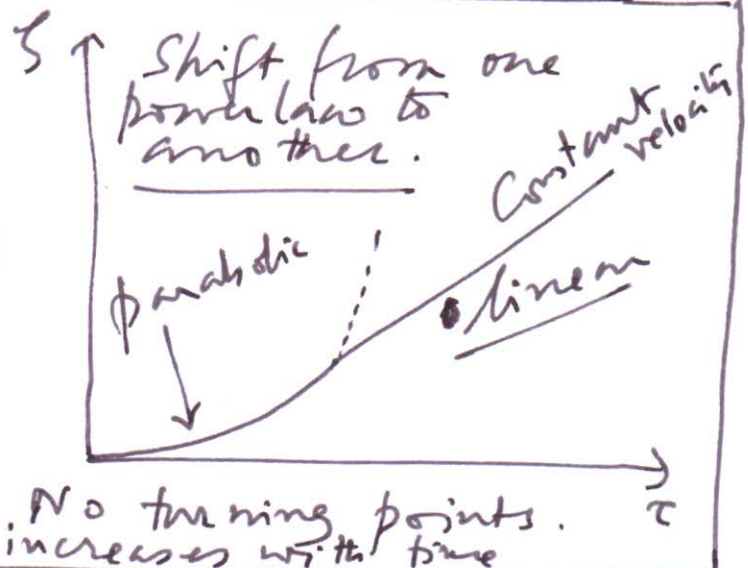 ζ
Shift from one
power law to
another.
Constant
velocity
parabolic
linear
τ
No turning points.
increases with time